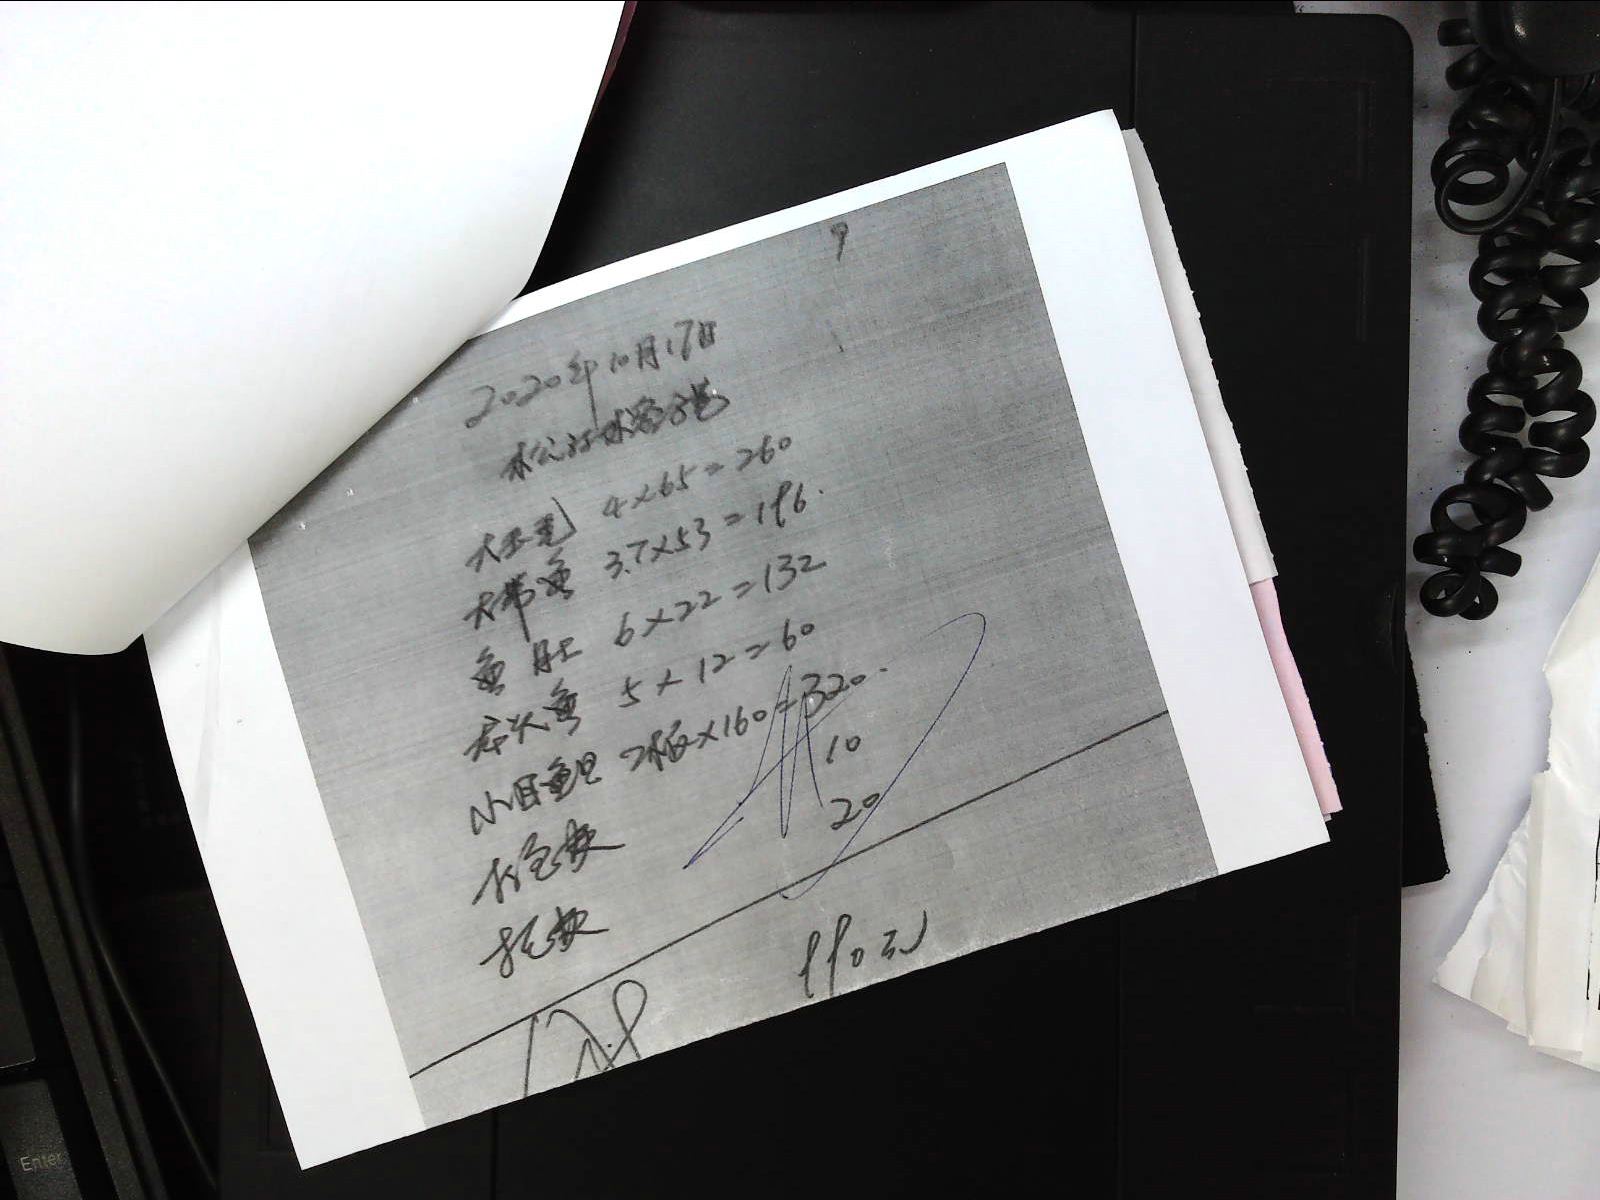 2020年10月17日
大玉秃 4×65=260
大带鱼 3.7×53=196.
鱼肚 6×22=132
龙头鱼 5×12=60
小目鱼旦 2板×160=320.
打包费 10
托费 20
990元
Enter